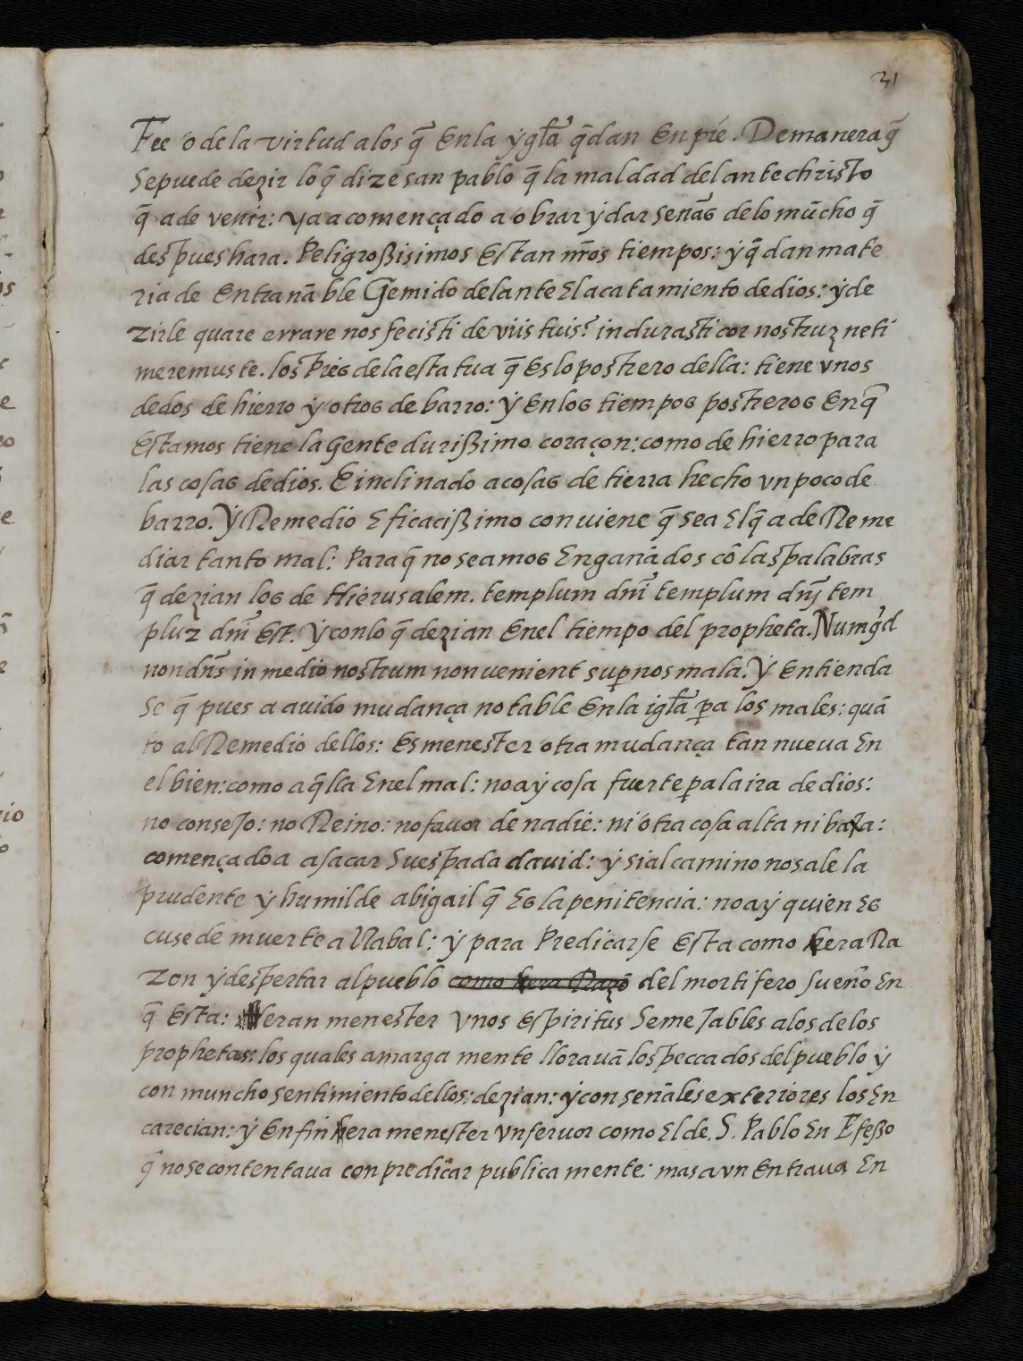 31
Fee o de la virtud a los q̃ En la ygl̃a q̃dan En pie. De manera q̃
Se puede dezir lo q̃ dize san pablo q̃ la maldad del antechristo
q̃ a de venir: ya a començado a obrar y dar senãs de lo mũcho q̃
despues hara. Peligroßisimos Estan nr̃os tiempos: y q̃ dan mate
ria de Entranãble Gemido delante El acatamiento de dios: y de
zirle quare errare nos fecisti de viis tuis? indurasti cor nostruz ne ti
meremus te. los Pies de la estatua q̃ Es lo postrero della: tiene vnos
dedos de hierro y otros de barro: y En los tiempos postreros En q̃
Estamos tiene la Gente durißimo coraçon: como de hierro para
las cosas de dios. E inclinado a cosas de tierra hecho vn poco de
barro. Y Remedio Eficacißimo conuiene q̃ sea El q̃ a de Reme
diar tanto mal: Para q̃ no seamos Enganãdos cõ las palabras
q̃ dezian los de Hierusalem. templum dn̄i templum dn̄j tem
pluz dn̄i Est. Y con lo q̃ dezian En el tiempo del propheta. Numq̃d
non dn̄s in medio nostrum non uenient sup nos mala. Y Entienda
se q̃ pues a auido mudança notable En la igl̃a pa los males: quã
to al Remedio dellos: Es menester otra mudança tan nueua En
el bien: como aq̃lla En el mal: no ay cosa fuerte pa la ira de dios:
no consejo: no Reino: no fauor de nadie: ni otra cosa alta ni baxa:
començado a a sacar Su espada dauid: y si al camino no sale la
prudente y humilde abigail q̃ Es la penitencia: no ay quien Es
cuse de muerte a Nabal: y para Predicarse Esta como hera Ra
zon y despertar al pueblo como hera Razõ del mortifero sueño En
q̃ Esta: Heran menester vnos Espiritus Semejables a los de los
prophetas: los quales amarga mente llorauã los peccados del pueblo y
con muncho sentimiento dellos: dezian: y con senãles exteriores los En
carecian: y En fin hera menester vn feruor como El de. S. Pablo En Efeßo
q̃ no se contentaua con predicar publica mente: mas avn Entraua En